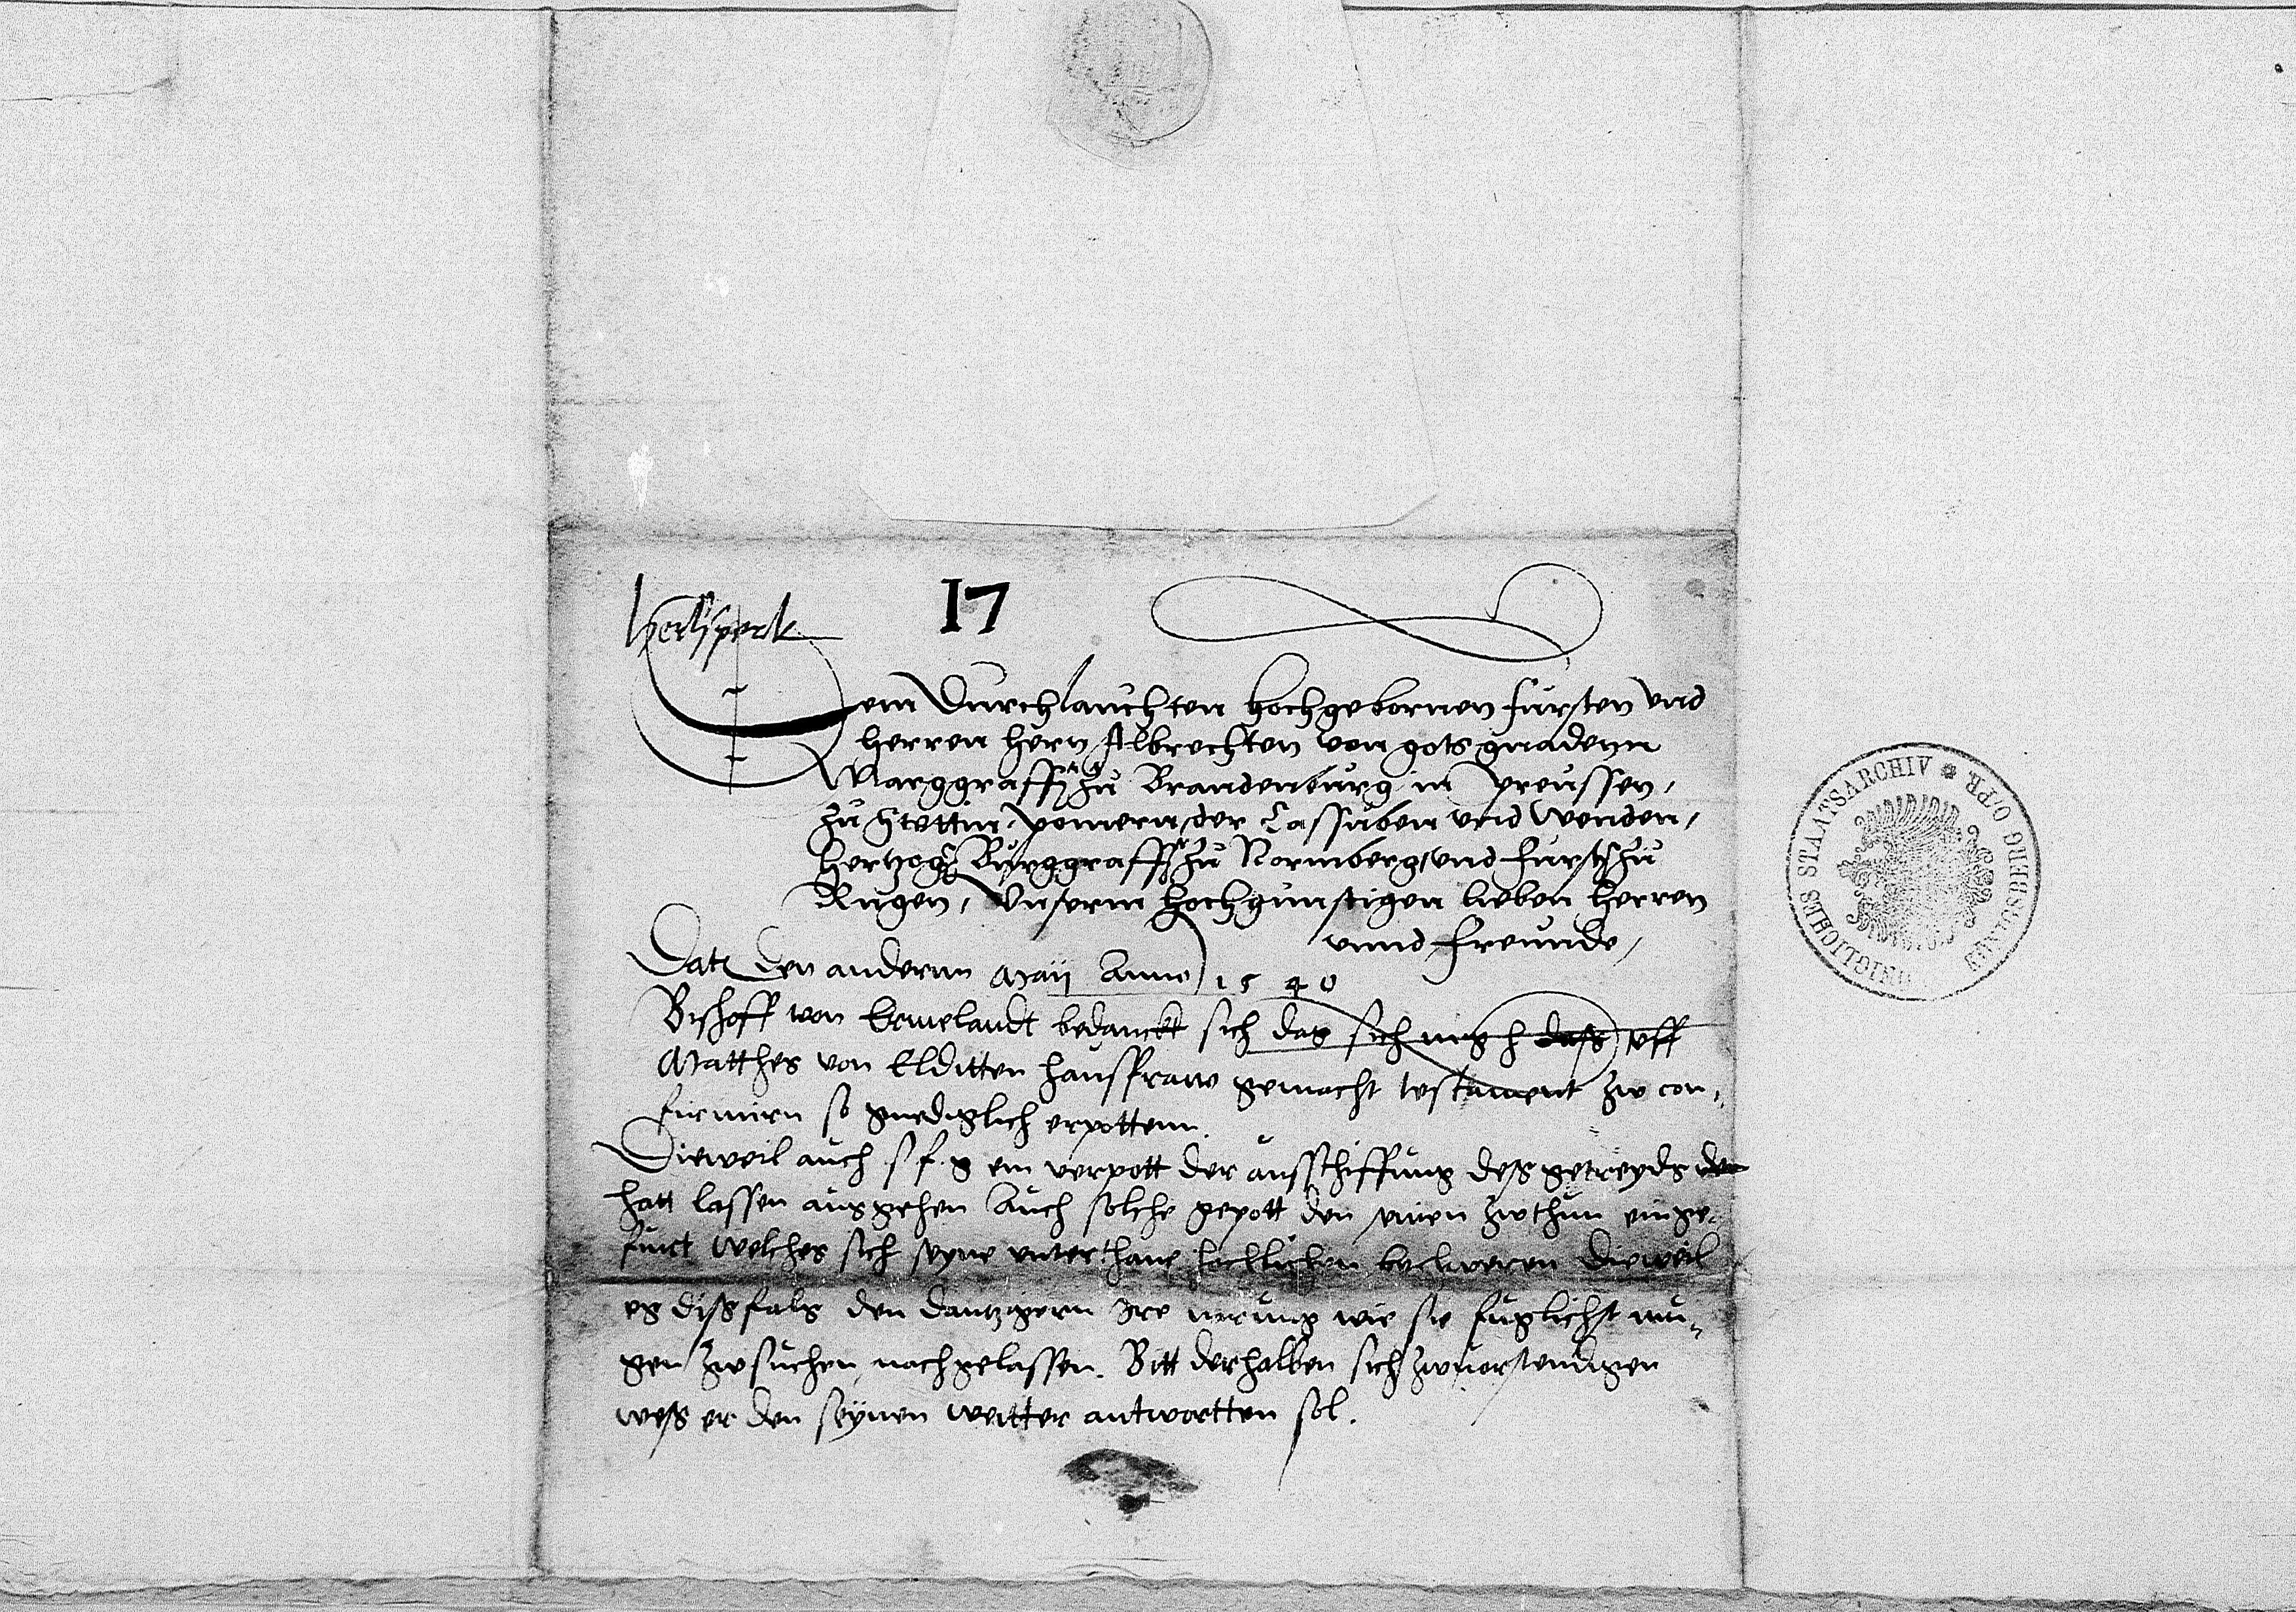 Heilsperk
17
Dem Durchlauchten hochgebornen fursten vnd
herren hern Albrechten von gots gnadenn
Marggraffen zu Brandenburg in Preussen,
zu Stettin, pomern, der Cassuben vnd Wenden,
hertzog Burggraff zu Normberg, vnd furst zu
Rugen, Vnserm hochgunstigen lieben herren
vnnd freunde,
Dat den andernn Maij Anno 1540
Bischoff von Ermelandt bedanckt sich das sich mg h dass vff
Matthes von Elditten hausfraw gemacht testament zw con
firmirn so gnediglich erpottenn.
Dieweil auch s f g ein verpott der ausschiffung dess getreyds den
hatt lassen ausgehen Auch solche gepott den zwthun einge
furt welches sich seyne vnterthane beclweren Dieweil
es dissfals den dantzigern Ire narung wie sie fuglichst mu
gen zwsuchen nachgelassen. Bitt derhalben sich zwuorstendigen
wess er den seynen weitter antwortten sol.
KÖNIGLICHES STAATSARCHIV * KÖNIGSBERG O/PR.